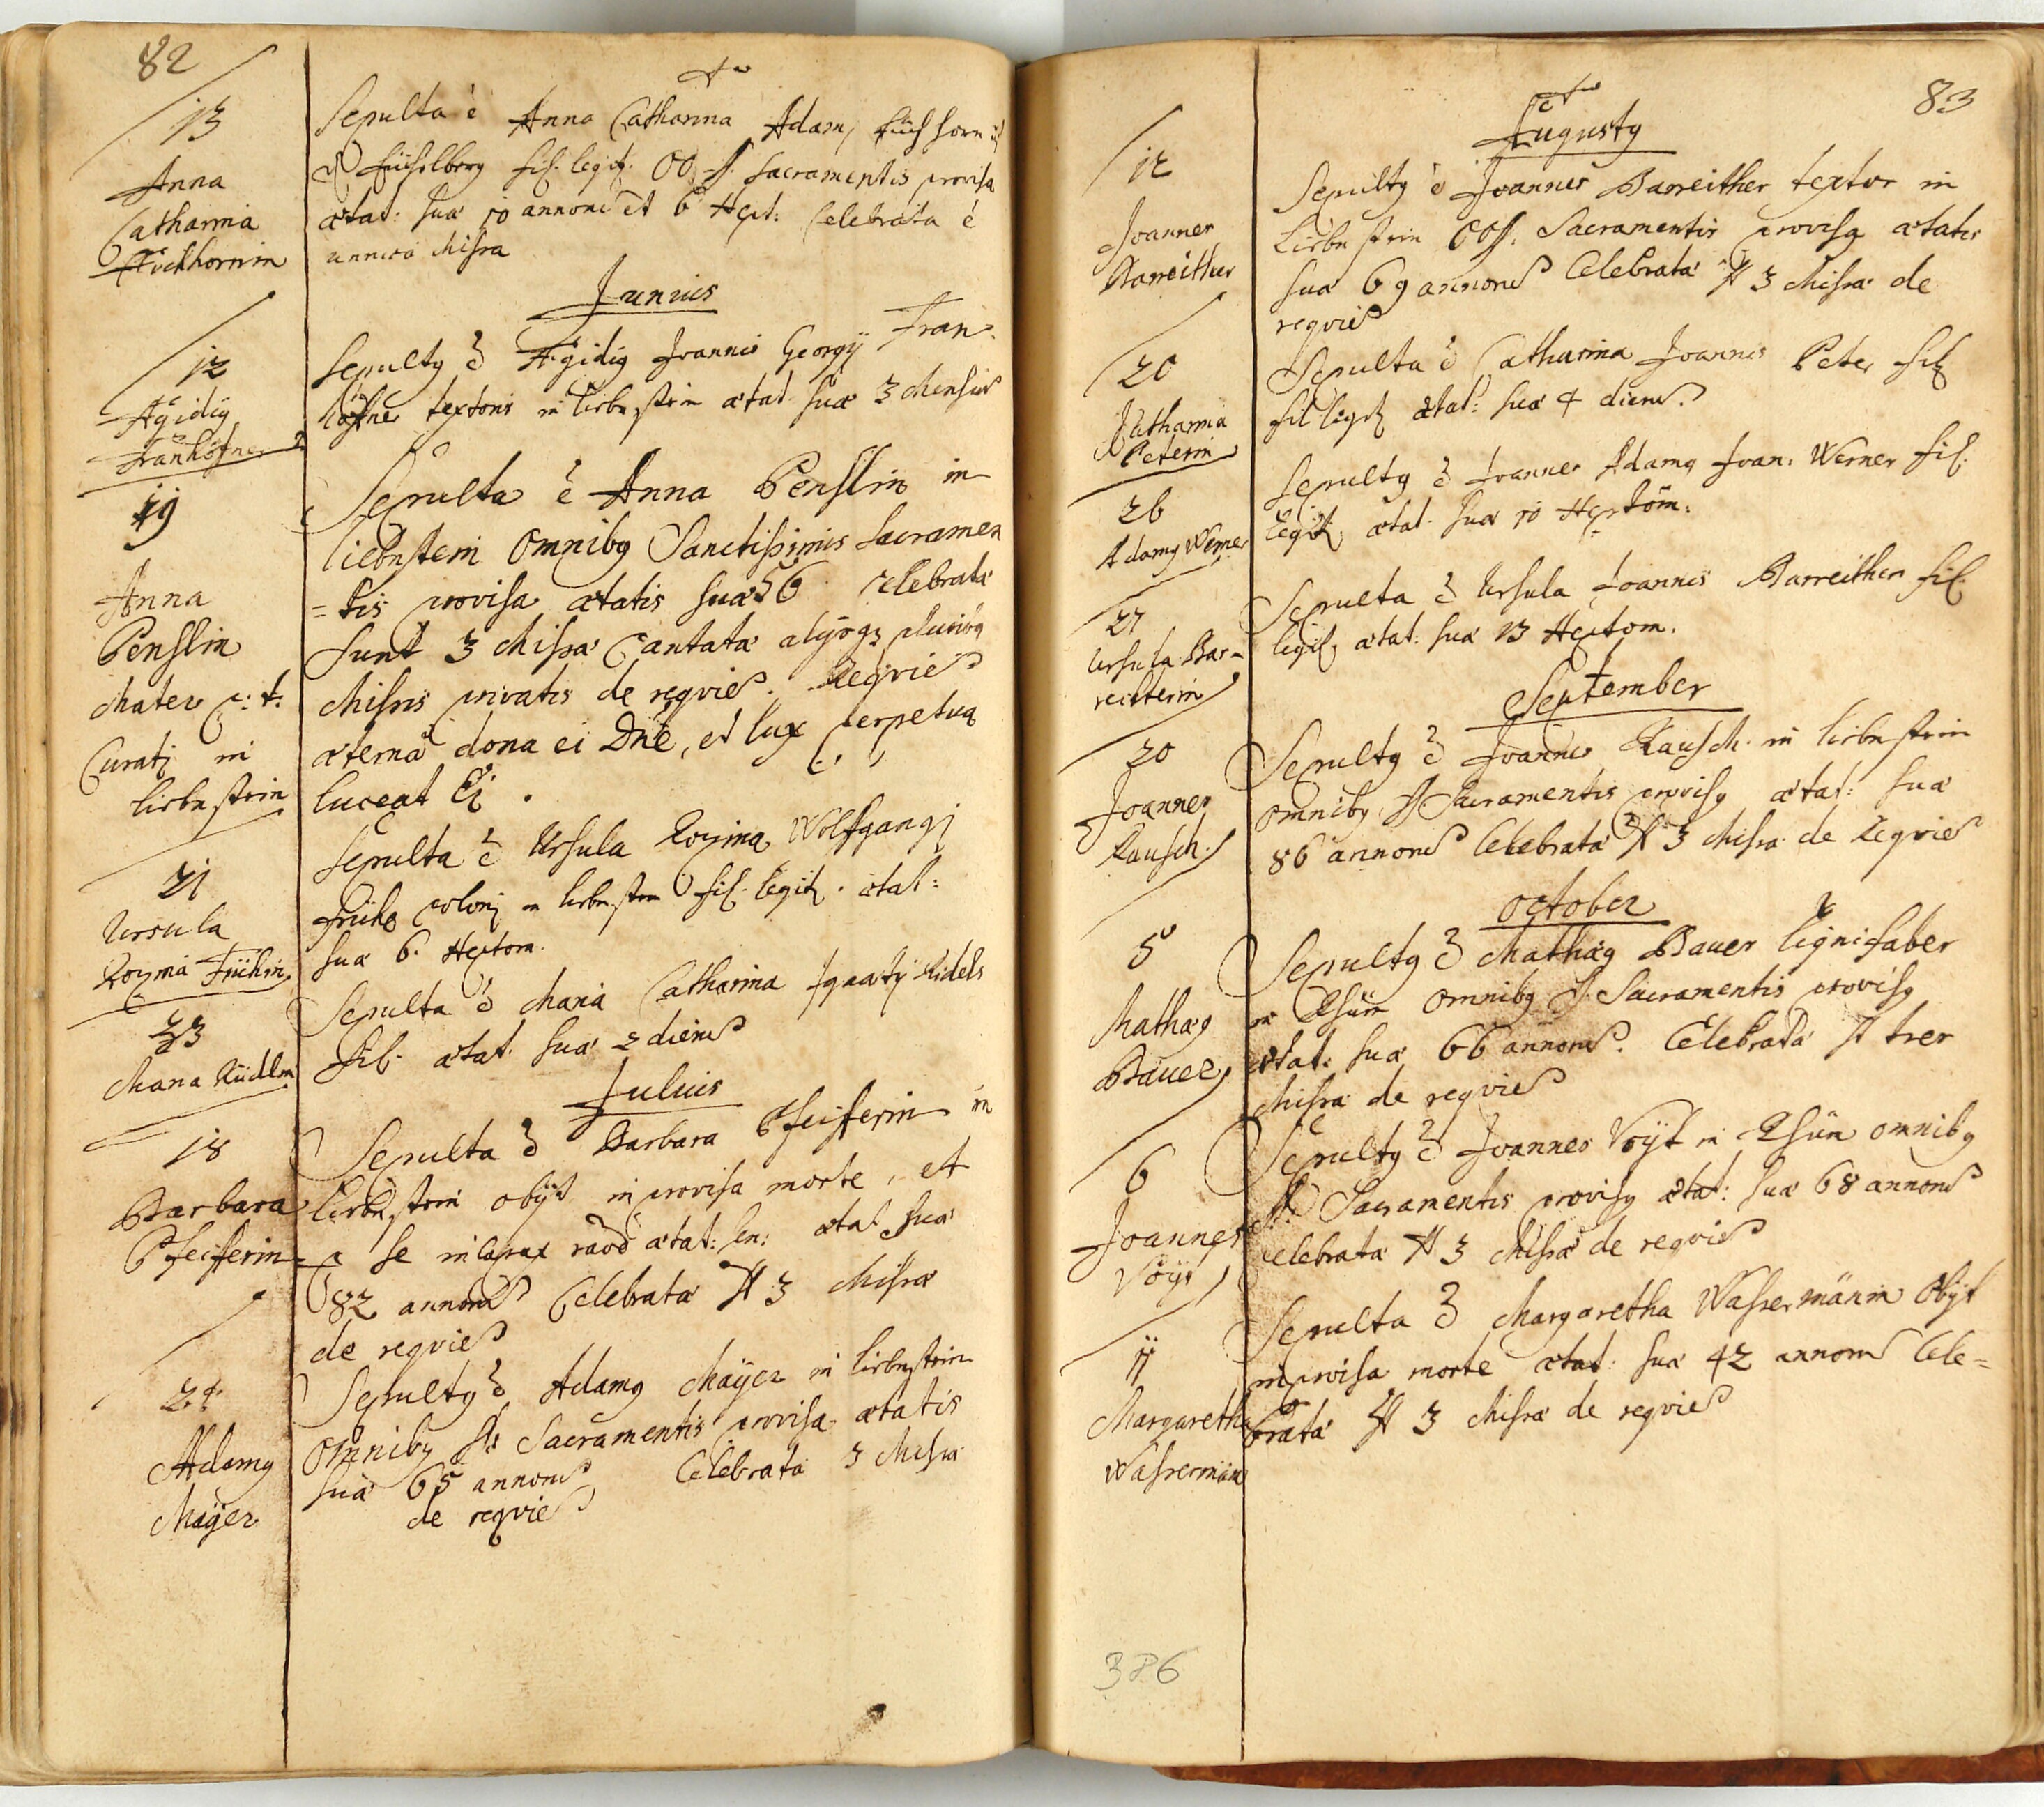 82
13
Anna
Catharina
Sepulta ē Anna Catharina Adami
fil: legit: OO. S. Sacramentis provisa
ætat: suæ 10 annorū et 6 Hept: Celebrata ē
unica Missa
Junius
12
Ægidi9
Franköfner
Sepult9 ē Ægidi9 Joannis Georgÿ Fran-
köfner textoris in liebnstein ætat. suæ 3 Mensiū
19
Anna
Penslin
Mater p: t:
Curatj in
liebnstein
Sepulta ē Anna Penslin in
liebnstein Omnib9 Sanctissimis Sacramen
=tis provisa ætatis suæ 56 celebratæ
sunt 3 Missæ Cantatæ
Missis privatis de requiē. Requiē
æternā dona ei Dn̄e, et lux perpetua
luceat Ei.
21
Ursula
Rosina
Sepulta ē Ursula Rosina Wolfgangj
colonj in liebnstein fil. legit. ætat:
suæ 6. Heptom.
23
Maria
Sepulta ē Maria Catharina Ignatÿ Ridels
fil. ætat. suæ 2 dierū
Julius
18
Barbara
Pfeifferin
Sepulta ē Barbara Pfeifferin in
liebnstein obÿt improvisa morte, et
se incapax ætat: ætat suæ
82 annorū Celebratæ st 3 Missæ
de requiē
24
Adam9
Maÿer
Sepult9 ē Adam9 Maÿer in liebnstein
Omnib9 ss: Sacramentis provisa ætatis
suæ 65 annorū Celebrata 3 Missa
de requiē
83
August9
12
Joannes
Barreither
Sepult9 ē Joannes Barreither textor in
Liebnstein OOss: Sacramentis provis9 ætatis
suæ 69 annorū Celebratæ st 3 Missæ de
requiē
20
Catharina
Peterin
Sepulta ē Catharina Joannis Peter
fil legit ætat: suæ 4 dierū.
26
Adam9 Werner
Sepult9 ē Joannes Adam9 Joan: Werner fil.
legit: ætat. suæ 10 Heptom:
27
Ursula Bar-
reitterin
Sepulta ē Ursula Joannis Barreither fil.
legit. ætat: suæ 13 Heptom.
September
20
Joannes
Rausch.
Sepult9 ē Joannes Rausch. in liebnstein
omnib9 ss Sacramentis provis9 ætat: suæ
86 annorū Celebratæ st 3 Missæ de Requiē
October
5
Mathæ9
Bauer
Sepult9 ē Mathæ9 Bauer lignifaber
in omnib9 S. Sacramentis provis9
ætat: suæ 66 annorū. Celebratæ st tres
Missæ de requiē
6
Joannes
Voÿt
Sepult9 ē Joannes Voÿt in omnib9
ss: Sacramentis provis9 ætat: suæ 68 annorū
celebratæ st 3 Missæ de requiē
11
Margaretha
Wassermän
Sepulta ē Margaretha Wassermänin Obÿt
improvisa morte ætat: suæ 42 annorū Cele=
bratæ st 3 Missæ de requiē
386